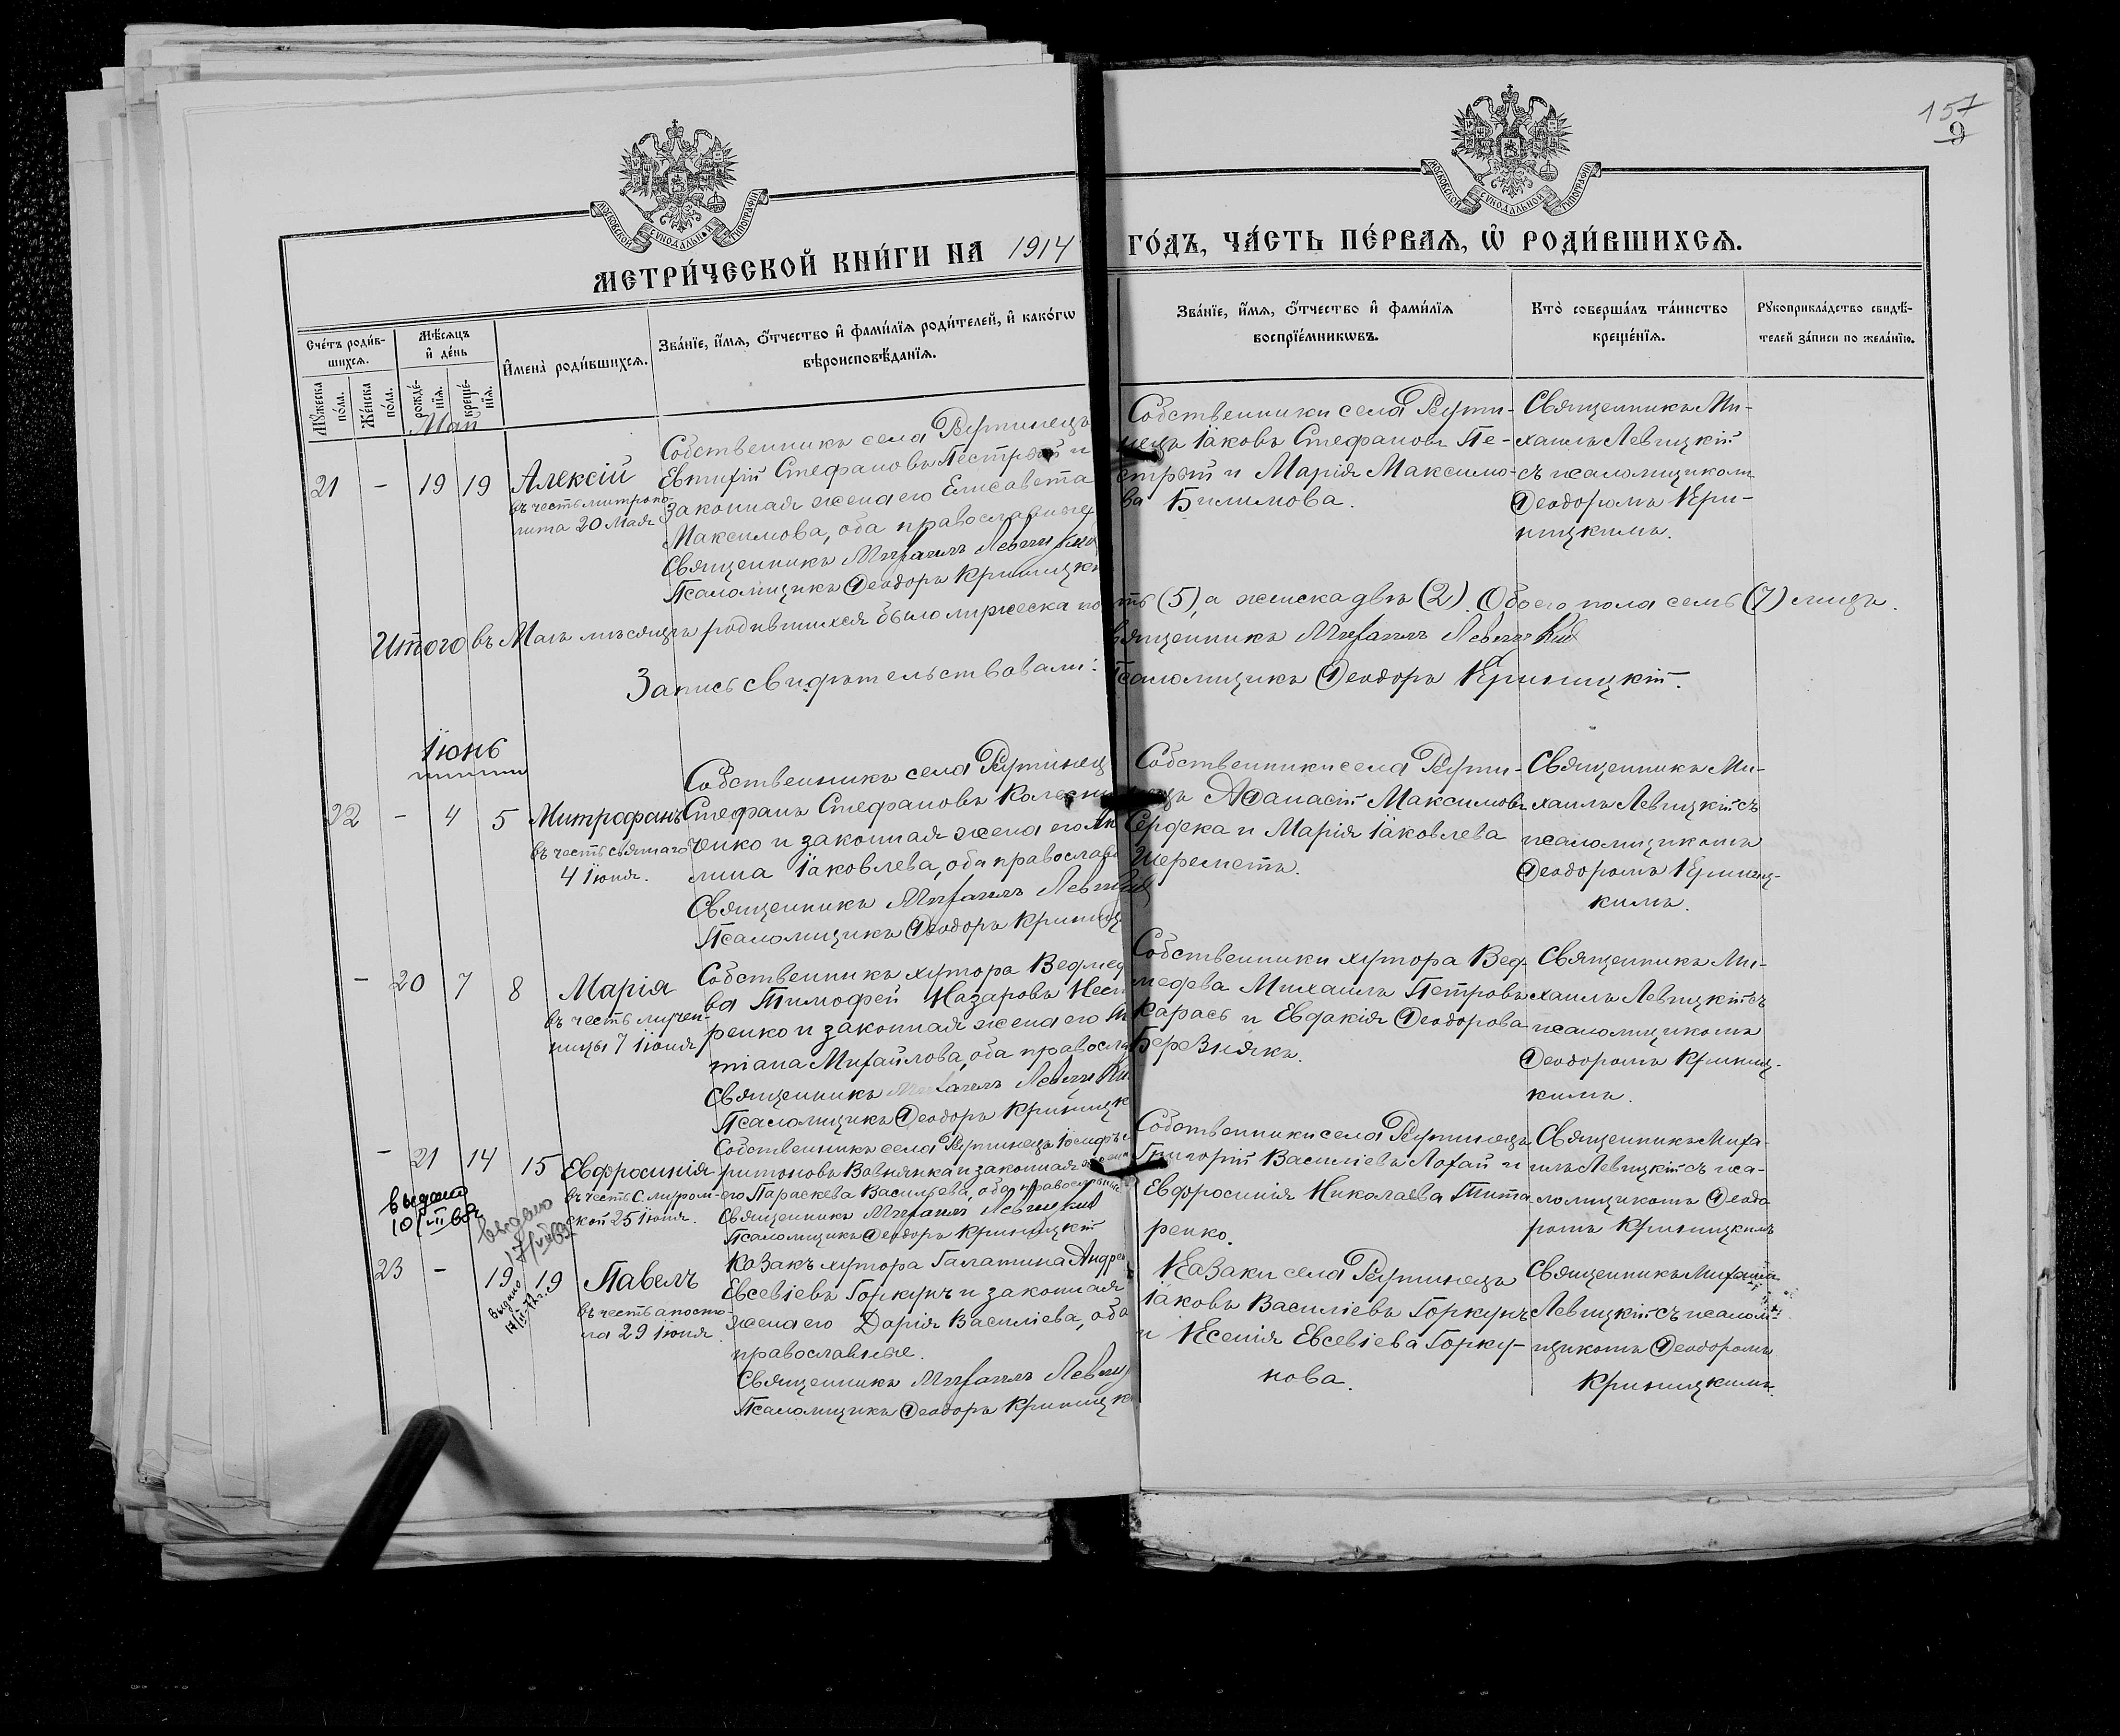 157
9
МОСКОВСКОЙ СѴНОДАЛЬНОЙ ТИПОГРАФІИ
МОСКОВСКОЙ СѴНОДАЛЬНОЙ ТИПОГРАФІИ
МЕТРИ́ЧЕСКОЙ КНИ́ГИ НА 1914 ГО́ДЪ, ЧА́СТЬ ПЕ́РВАѦ, Ѡ҆ РОДИ́ВШИХСѦ.
Сче́тъ роди́в-
шихсѧ.
Мꙋ́жеска по́ла.
Же́нска по́ла.
Мѣ́сѧцъ
и҆ де́нь
рожде́-
нїѧ.
креще́-
нїѧ.
И҆мена̀ роди́вшихсѧ.
Зва́нїе, и҆́мѧ, ѻ҆́тчество и҆ фами́лїѧ роди́телей, и҆ како́гѡ
вѣроисповѣ́данїѧ.
Зва́нїе, и҆́мѧ, ѻ҆́тчество и҆ фами́лїѧ
воспрїе́мникѡвъ.
Кто̀ соверша́лъ та́инство
креще́нїѧ.
Рꙋкоприкла́дство свидѣ́-
телей за́писи по жела́нїю.
Май
21 - 19 19 Алексій
въ честь митропо-
лита 20 Мая
Собственникъ села
Евтихій Стефановъ Пестрый и
законная жена его Елисавета
Максимова, оба православные
Священникъ Михаилъ Левицкій
Псаломщикъ Ѳеодоръ Криницкій
Собственники села
Іаковъ Стефановъ Пе-
стрый и Марія Максимо-
ва Билимова.
Священникъ Ми-
хаилъ Левицкій
съ псаломщикомъ
Ѳеодоромъ Кри-
ницкимъ.
Итого въ Маѣ мѣсяцѣ родившихся было мужеска пять (5), а женска двѣ (2). Обоего пола семь (7) лицъ.
Священникъ Михаилъ Левицкій
Запись свидѣтельствовали: Псаломщикъ Ѳеодоръ Криницкій.
Іюнь
22 - 4 5 Митрофанъ
въ честь святаго
4 Іюня.
Собственникъ села
Стефанъ Стефановъ Колесни
ченко и законная жена его
лина Іаковлева, оба православ
Священникъ Михаилъ Левицкій
Псаломщикъ Ѳеодоръ Криниц
Собственники села
Аѳанасій Максимовъ
Сердека и Марія Іаковлева
Шереметъ.
Священникъ Ми-
хаилъ Левицкій съ
псаломщикомъ
Ѳеодоромъ Криниц-
кимъ.
- 20 7 8 Марія
въ честь мучен-
ницы 7 Іюня
Собственникъ хутора Ведмед
ва Тимофей Назаровъ Нест
ренко и законная жена его Та
тіана Михайлова, оба правосла
Священникъ Михаилъ Левицкій
Псаломщикъ Ѳеодоръ Криницк
Собственники хутора Вед-
медева Михаилъ Петровъ
Карась и Евдокія Ѳеодорова
Березнякъ.
Священникъ Ми-
хаилъ Левицкій съ
псаломщикомъ
Ѳеодоромъ Криниц-
кимъ.
- 21 14 15 Евфросинія
въ честь
25 Іюня.
Собственникъ села
законная
его Параскева Васильева, оба православные
Священникъ Михаилъ Левицкій
Псаломщикъ Ѳеодоръ Криницкій
Собственники села
Григорій Василіевъ Лохай и
Евфросинія Николаева Тита
ренко.
Священникъ Миха-
илъ Левицкій съ пса-
ломщикомъ Ѳеодо-
ромъ Криницкимъ
выдано
выдано
23 - 19 19 Павелъ
въ честь апосто-
ла 29 Іюня.
выдано
Казакъ хутора Галагина Андрей
Евсевіевъ Горкунъ и законная
жена его Дарія Василіева, оба
православные.
Священникъ Михаилъ Левиц
Псаломщикъ Ѳеодоръ Криницк
Казаки села
Іаковъ Василіевъ Горкунъ
и Ксенія Евсевіева Горку-
нова.
Священникъ Михаилъ
Левицкій съ псалом-
щикомъ Ѳеодоромъ
Криницкимъ.